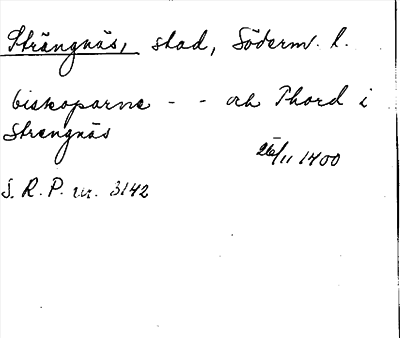 Strängnäs, stad, Söderm. l.
biskoparne - - och Thord i
Strengnäs
26/11 1400
S. R. P. nr. 3142